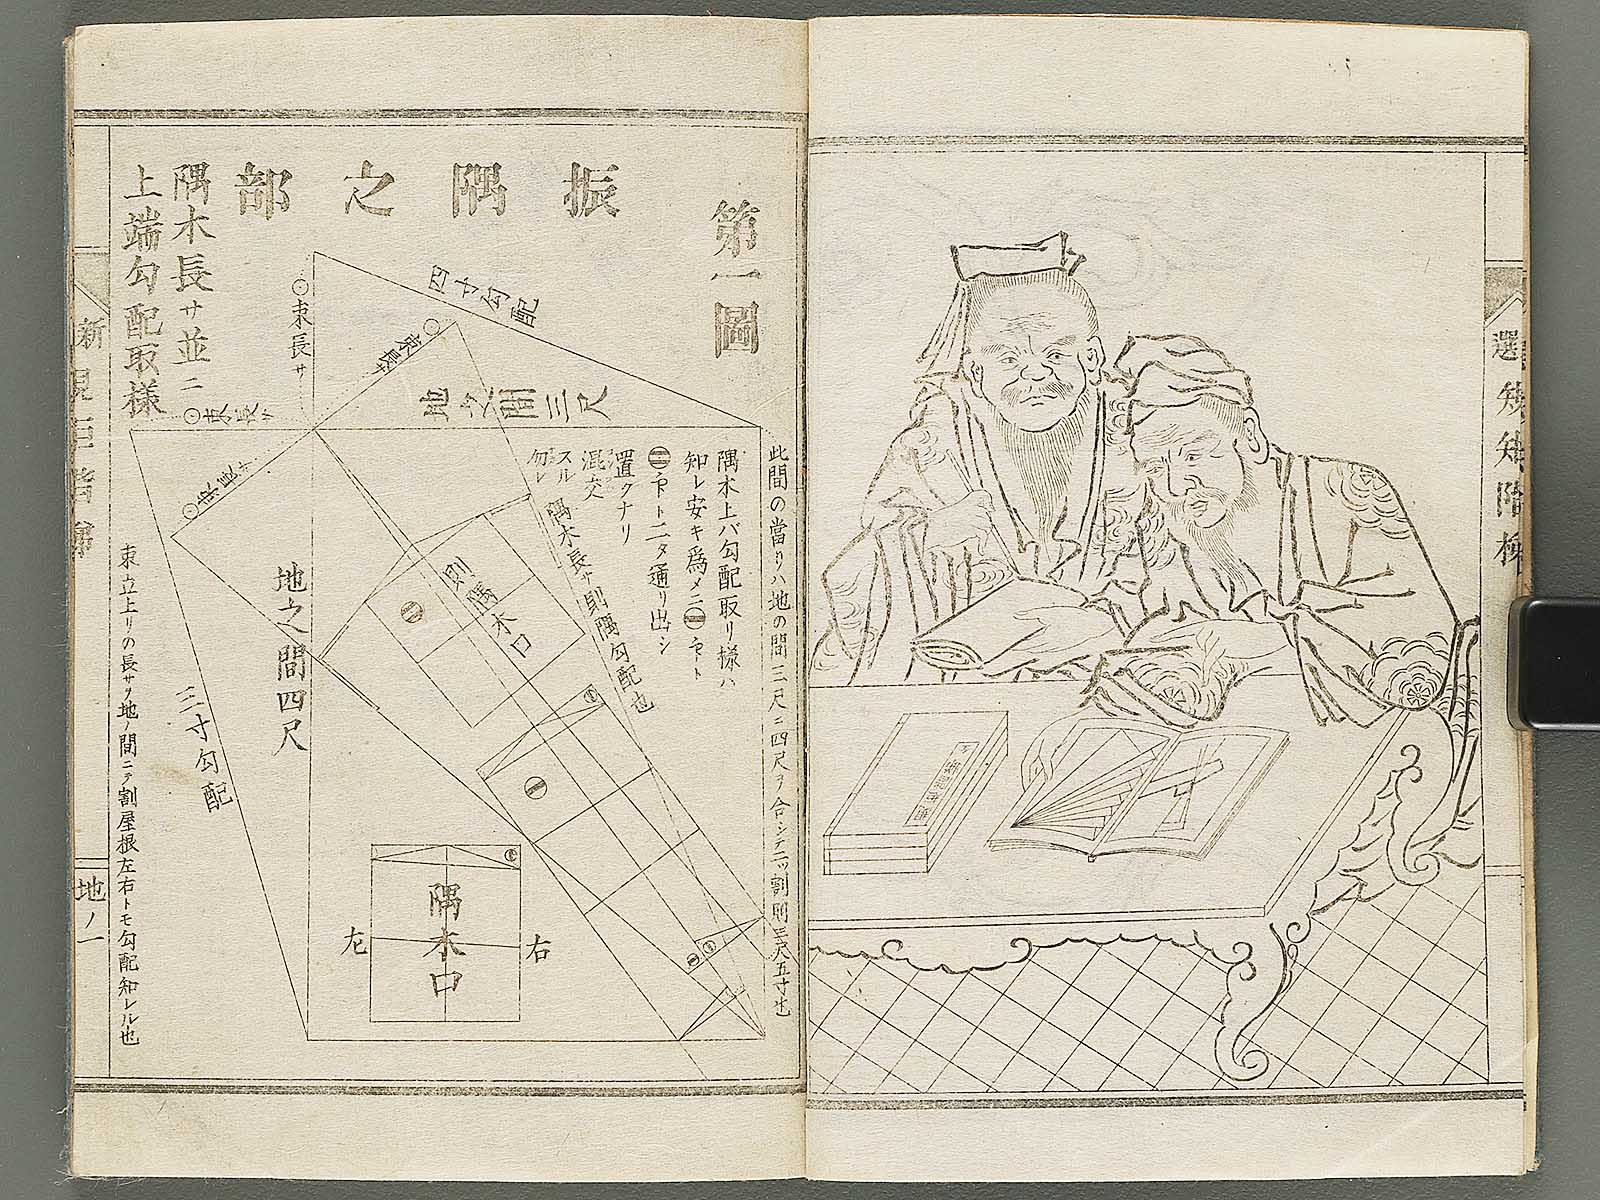 第一圖
振隅之部
隅木長サ並ニ
上端勾配取様
四寸勾配
地之間三尺
束長サ
束長サ
束長サ
束長サ
此間の當りハ地の間三尺ニ四尺ヲ合シテ二ッ割則三尺五寸也
隅木上バ勾配取リ様ハ
知レ安キ爲メニ㊀
㊁ト二タ通リ出シ
置クナリ
混交
スル
勿レ
隅木長サ則隅勾配也
則隅木口
地之間四尺
三寸勾配
束立上リの長サヲ地ノ間ニテ割屋根左右トモ勾配知レル也
隅木口
右
左
地ノ一